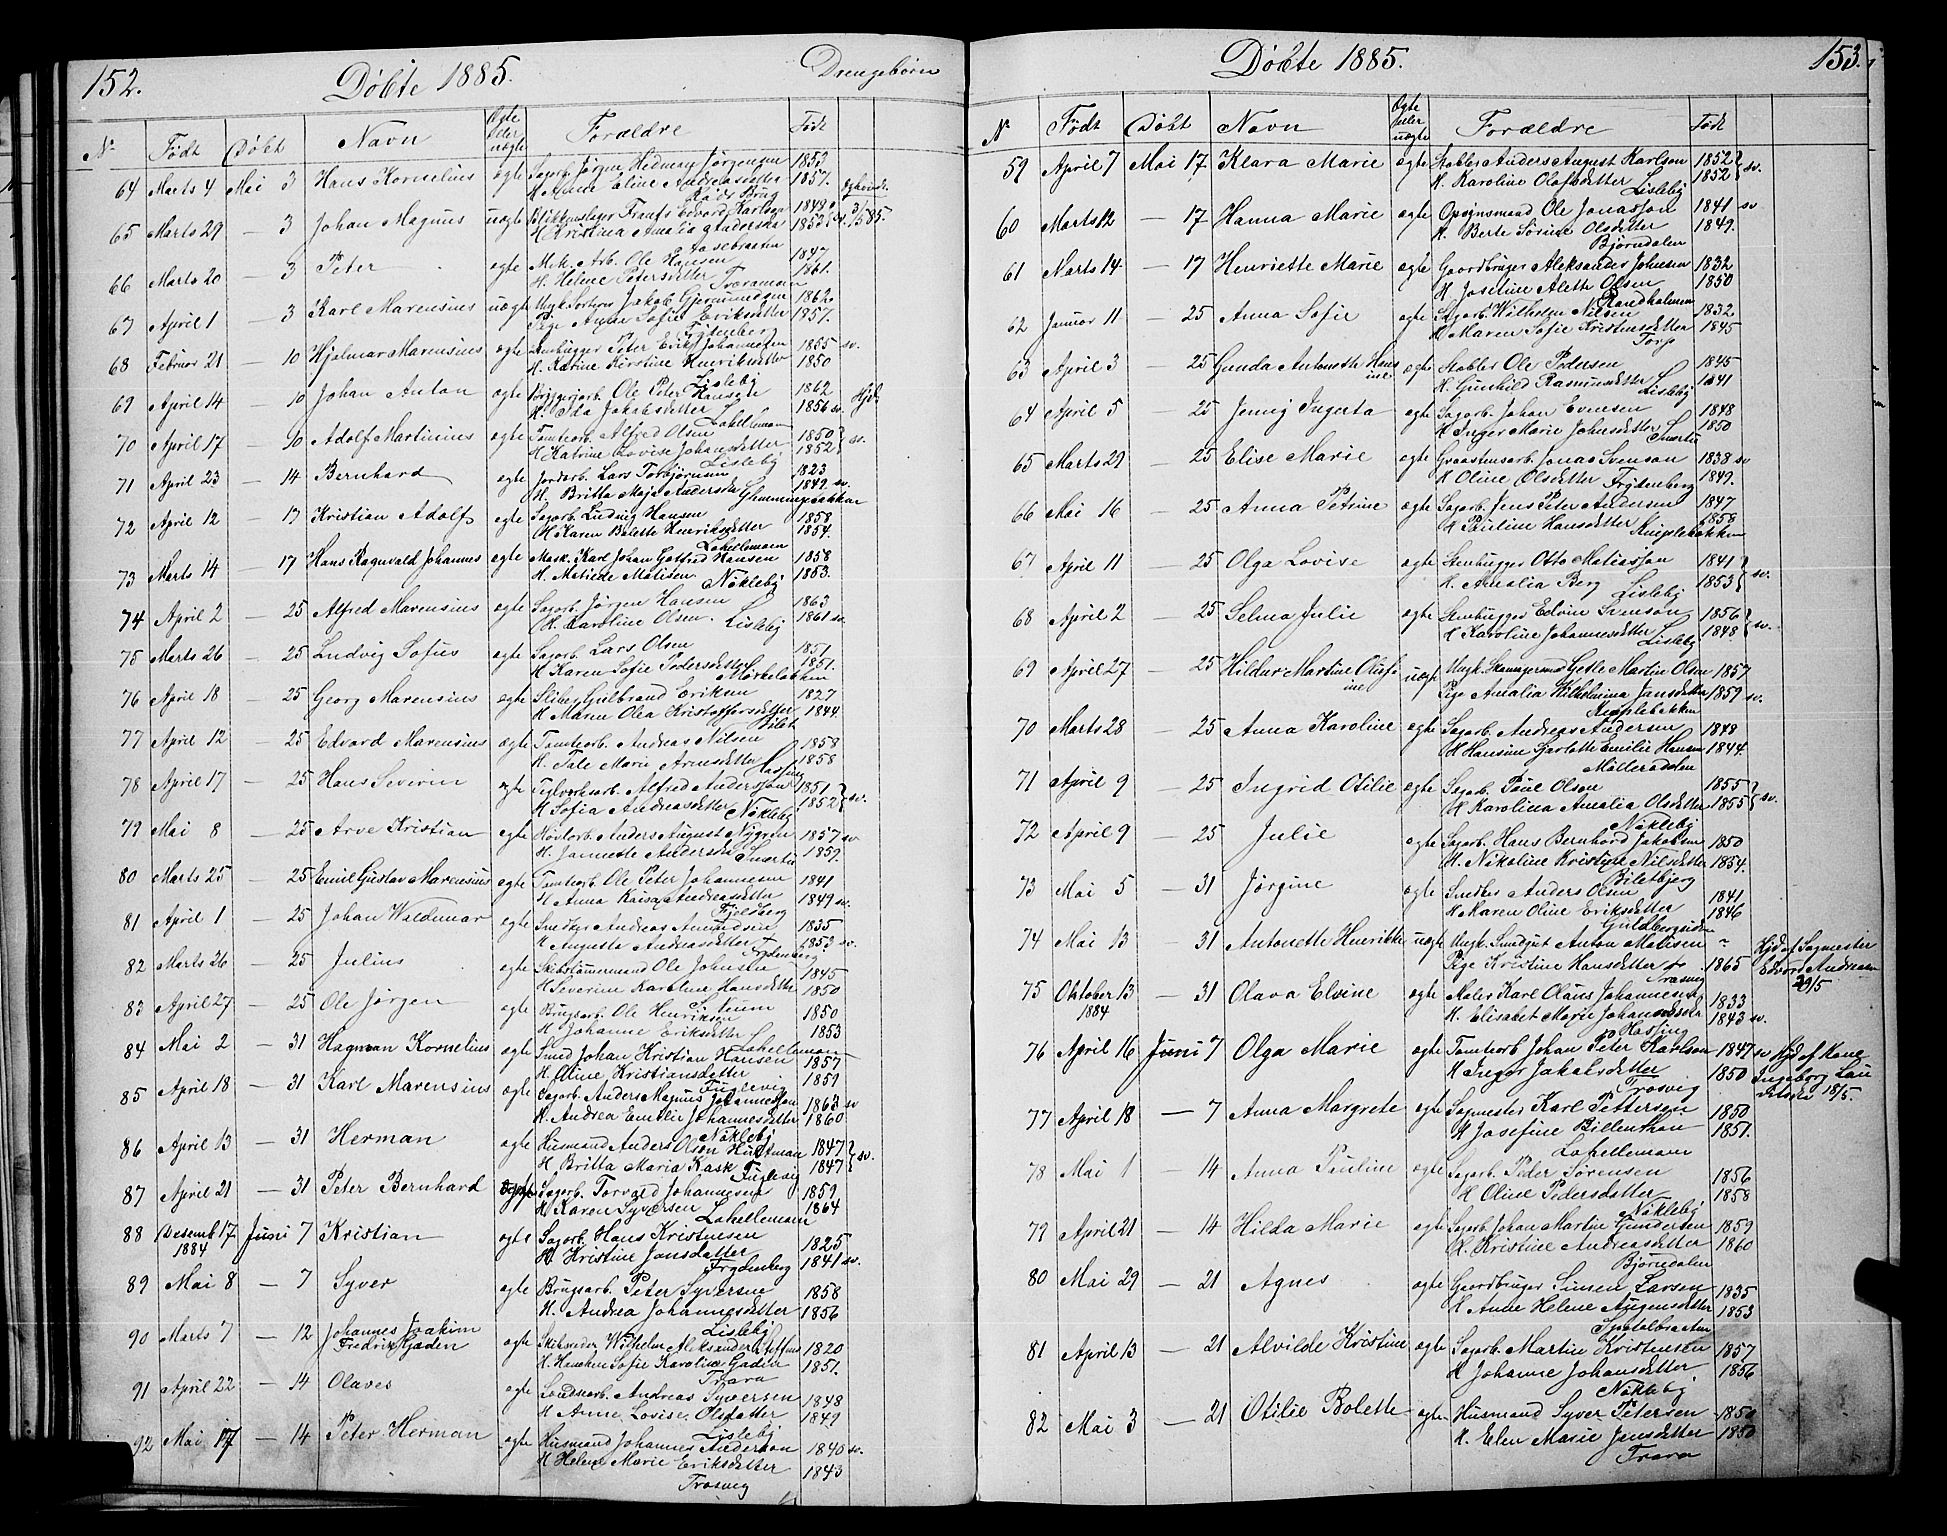 152.
Døbte 1885.
Drengebørn
No Født Døbt Navn Ægte eller uægte Forældre Født
64 Marts 4 Mai 3 Hans Kornelius ægte Sagarb. Jørgen Hedman Jørgensen 1853
H. Anne Eline Andreasdatter 1857.
65 Marts 29 — 3 Johan Magnus uægte Blikkenslager Edvard Karlson 1848
H. Kristina Amalia 1853
66 Marts 20 — 3 Peter ægte Mek. Arb. Ole Hansen 1847
H. Helene Petersdatter 1861.
67 April 1 — 3 Karl Marensius uægte Ungk. Jakob 1862
Pige Anne Sofie Eriksdatter 1857.
Frydenberg
68 Februar 21 — 10 Hjalmar Marensius ægte Stenhugger Peter Erik Johannesen 1865 sv.
H. Katrine Kirstine Henriksdatter 1850
Lisleby
69 April 14 — 10 Johan Anton ægte Bryggerarb. Ole Peter Hansen 1862
H. Ida Jakobsdatter 1856 sv.
Lahellemoen
70 April 17 — 10 Adolf Martinius ægte Tomtearb. Alfred Olsen 1850
H. Katrine Lovise Johansdatter 1852 sv.
Lisleby
71 April 23 — 14 Bernhard ægte Jordarb. Lars Torbjørnsen 1823
H. Britta Maja Andersdatter 1849. sv.
72 April 12 — 17 Kristian Adolf ægte Sagarb. Ludvig Hansen 1858
H. Karen Bolette Henriksdatter 1854.
Lahellemoen
73 Marts 14 — 17 Hans Ragnvald Johannes ægte Mask. Karl Johan Gotfred Hansen 1858
H. Matilde Matisen 1853.
Nøkleby
74 April 2 — 25 Alfred Marensius ægte Sagarb. Jørgen Hansen 1863
H. Karoline Olsen. Lisleby 1861 sv.
75 Marts 26 — 25 Ludvig Sofus ægte Sagarb. Lars Olsen 1851
H. Karen Sofie Pedersdatter 1851.
76 April 18 — 25 Georg Marensius ægte Sliber Gulbrand Eriksen 1827
H. Maren Olea Kristoffersdatter 1844.
77 April 12 — 25 Edvard Marensius ægte Tomtearb. Andreas Nilsen 1858
H. Tale Marie Arnesdatter 1858
Hassing
78 April 17 — 25 Hans Severin ægte Teglverksarb. Alfred Andersson 1851
H. Sofia Andreasdatter 1852 sv.
Nøkleby
79 Mai 8 — 25 Arve Kristian ægte Høvlarb. Anders August Nygren 1857 sv
H. Jannette Andersdatter 1859.
80 Marts 25 — 25 Emil Gustav Marensius ægte Tomtearb. Ole Peter Johannesen 1841
H. Anna Kaisa Andreasdatter 1849 sv.
Fjeldberg
81 April 1 — 25 Johan Waldemar ægte Snedker Andreas Amundsen 1835
H. Augusta Andreasdatter 1853 sv.
Frydenberg
82 Marts 26 — 25 Julius ægte Skibstømmermand Ole Johnsen 1845
H. Severine Karoline Hansdatter 1850
83 April 27 — 25 Ole Jørgen ægte Brugsarb. Ole Henriksen 1850
H. Johanne Eriksdatter 1853
Lahellemoen
84 Mai 2 — 31 Hagman Kornelius ægte Smed Johan Kristian Hansen 1857
H. Oline Kristiansdatter 1859
Fuglevig
85 April 18 — 31 Karl Marensius ægte Sagarb. Anders Magnus Johannesson 1863 sv
H. Andrea Emilie Johannesdatter 1860
Nøkleby
86 April 13 — 31 Herman ægte Husmand Anders Olsen Hultman 1847
H. Britta Maria Kask 1847 sv.
Fuglevig
87 April 21 — 31 Peter Bernhard ægte Sagarb. Torvald Johannesen 1859
H. Karen Syversen 1864
Lahellemoen
88 Desemb. 17 1884 Juni 7 Kristian ægte Sagarb. Hans Kristensen 1825
H. Kristine Jansdatter 1841 sv.
Frydenberg
89 Mai 8 — 7 Syver ægte Brugsarb. Peter Syversen 1858
H. Andrea Johannesdatter 1856
Lisleby
90 Marts 7 — 12 Johannes Joakim Fredrik Gjaden ægte Skibsreder Wilhelm Aleksander 1820
H. Sofie Karoline Gaden 1851.
Trara
91 April 22 — 14 Olaves ægte Andreas Syversen 1848
H. Anne Lovise Olsdatter 1849
Lisleby
92 Mai 17 — 14 Peter Herman ægte Husmand Johannes Anderson 1840 sv.
H. Helene Marie Eriksdatter 1843
Trosvig
Døbte 1885.
153.
No Født Døbt Navn Ægte eller uægte Forældre Født
59 April 7 Mai 17 Klara Marie ægte Stabler Anders August Karlson 1852
H. Karoline Olafsdatter 1852 sv.
Lisleby
60 Marts 12 — 17 Hanna Marie ægte Opsynsmand Ole Jonasson 1841 sv
H. Berte Sørine Olsdatter 1849.
Bjørndalen
61 Marts 14 — 17 Henriette Marie ægte Gaardbruger Aleksander Johnsen 1832
H. Josefine Alette Olsen 1850
62 Januar 11 — 25 Anna Sofie ægte Sagarb. Wilhelm Nilsen 1832
H. Maren Sofie Kristensdatter 1845
Torp
63 April 3 — 25 Gunda Antonette Hansine ægte Stabler Ole Pedersen 1845
H. Gunhild Rasmusdatter 1841
Lisleby
64 April 5 — 25 Jenny Ingerta ægte Sagarb. Johan Evensen 1848
H. Inger Marie Johnsdatter 1850
65 Marts 29 — 25 Elise Marie ægte Graastensarb. Jonas Svenson 1838 sv
H. Oline Olsdatter 1849.
Frydenberg
66 Mai 16 — 25 Anna Petrine ægte Sagarb. Jens Peter Andersen 1847
H. Pauline Hansdatter 1858
Kniplebakken
67 April 11 — 25 Olga Lovise ægte Stenhugger Otto Matiasson 1841
H. Amalia Berg 1853 sv.
Lisleby
68 April 2 — 25 Selma Julie ægte Stenhugger Edvin Svenson 1856
H. Karoline Johannesdatter 1848 sv.
Lisleby
69 April 27 — 25 Hildur Martine Olufine uægt Ungk. Getle Martin Olsen 1857
Pige Amalia Wilhelmina Jansdatter 1859 sv.
Kniplebakken
70 Marts 28 — 25 Anna Karoline ægte Sagarb. Andreas Andersen 1848
H. Hansine Sjarlotte Emilie Hansen 1844.
Mölleradalen
71 April 9 — 25 Ingrid Otilie ægte Sagarb. Paul Olson 1855
H. Karolina Amalia Olsdatter 1855 sv.
Nøkleby
72 April 9 — 25 Julie ægte Sagarb. Hans Bernhard Jakobsen 1850
H. Nikoline Kristine Nilsdatter 1854.
73 Mai 5 — 31 Jørgine ægte Snedker Anders Olsen 1841
H. Maren Oline Eriksdatter 1846
Guldbergsiden
74 Mai 13 — 31 Antonette Henrikke uægte Ungk. Anton Matisen ~ Hjd. af Sagmester
Pige Kristine Hansdatter 1865 Edvard Andreasen
Trosvig 29/5
75 Oktober 13 1884 — 31 Olava Elvine ægte Maler Karl Olaus Johannesen 1833
H. Elisabet Marie Johansdatter 1843 sv.
Hassing
76 April 16 Juni 7 Olga Marie ægte Tomtearb. Johan Peter Karlson 1847 sv Hjd. af Kone
H. Inger Jakobsdatter 1850 Ingeborg
Trosvig 18/5.
77 April 18 — 7 Anna Margrete ægte Sagmester Karl Pettersen 1850
H. Josefine 1851.
Lahellemoen
78 Mai 1 — 14 Anna Pauline ægte Sagarb. Peder Sørensen 1856
H. Oline Pedersdatter 1858
Nøkleby
79 April 21 — 14 Hilda Marie ægte Sagarb. Johan Martin Gundersen 1859
H. Kristine Andreasdatter 1860
Bjørndalen
80 Mai 29 — 21 Agnes ægte Gaardbruger Simen Larsen 1835
H. Anne Helene 1853
81 April 13 — 21 Alvilde Kristine ægte Sagarb. Martin Kristensen 1857
H. Johanne Johansdatter 1856
Nøkleby
82 Mai 3 — 21 Otilie Bolette ægte Husmand Syver Petersen 1850
H. Elen Marie Jensdatter 1850
Trara